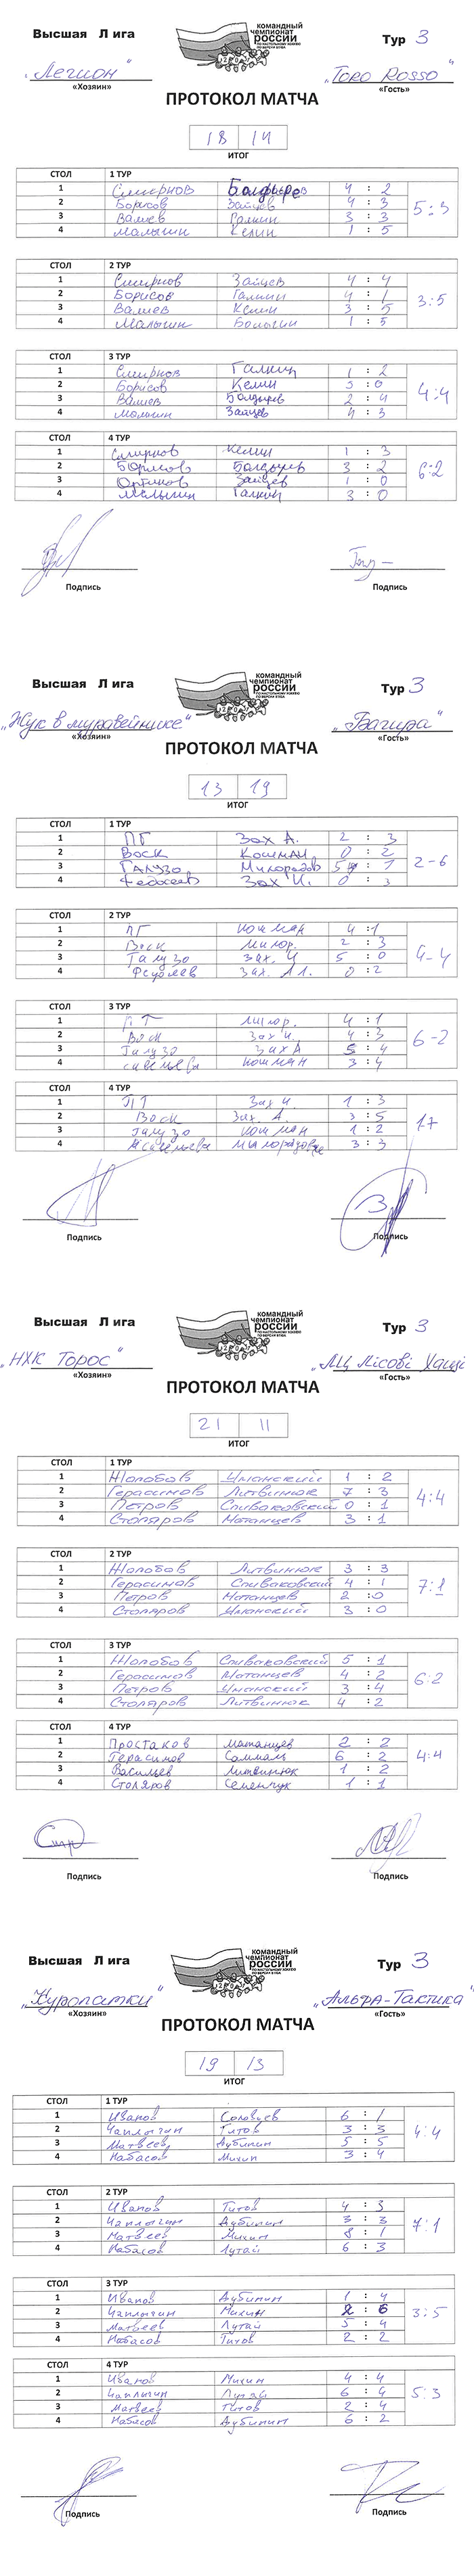 Высшая Лига
командный
чемпионат
россии
по настольному хоккею
Тур 3
"Легион"
"Toro Rosso"
«Хозяин»
«Гость»
ПРОТОКОЛ МАТЧА
18 14
ИТОГ
СТОЛ 1 ТУР
1 Смирнов Болдырев 4 : 2
2 Борисов Зайцев 4 : 3
3 Валиев Галкин 3 : 3
4 Малыгин Келин 1 : 5
5:3
СТОЛ 2 ТУР
1 Смирнов Зайцев 4 : 4
2 Борисов Галкин 4 : 1
3 Валиев Келин 3 : 5
4 Малыгин 1 : 5
3:5
СТОЛ 3 ТУР
1 Смирнов Галкин 1 : 2
2 Борисов Келин 3 : 0
3 Валиев Болдырев 2 : 4
4 Малыгин Зайцев 4 : 3
4:4
СТОЛ 4 ТУР
1 Смирнов Келин 1 : 3
2 Борисов Болдырев 3 : 2
3 Зайцев 1 : 0
4 Малыгин Галкин 3 : 0
6:2
Подпись
Подпись
Высшая Лига
командный
чемпионат
россии
по настольному хоккею
Тур 3
"Жук в муравейнике"
"Багира"
«Хозяин»
«Гость»
ПРОТОКОЛ МАТЧА
13 19
ИТОГ
СТОЛ 1 ТУР
1 ПГ Зах А. 2 : 3
2 Воск Кошман 0 : 2
3 Галузо Милорадов 5 : 1
4 Федосеев Зах И. 0 : 3
2-6
СТОЛ 2 ТУР
1 ПГ Кошман 4 : 1
2 Воск Милор. 2 : 3
3 Галузо Зах. И 5 : 0
4 Зах. 0 : 2
4-4
СТОЛ 3 ТУР
1 ПГ Милор. 4 : 1
2 Воск Зах И. 4 : 3
3 Галузо Зах А 5 : 4
4 Савельева Кошман 3 : 4
6-2
СТОЛ 4 ТУР
1 ПГ Зах И. 1 : 3
2 Воск Зах. А. 3 : 5
3 Галузо Кошман 1 : 2
4 Савельева 3 : 3
17
Подпись
Подпись
Высшая Лига
командный
чемпионат
россии
по настольному хоккею
Тур 3
"НХК Торос"
"МЦ Лісові Хащі
«Хозяин»
«Гость»
ПРОТОКОЛ МАТЧА
21 11
ИТОГ
СТОЛ 1 ТУР
1 Жолобов Уманский 1 : 2
2 Герасимов Литвинюк 7 : 3
3 Петров Спиваковский 0 : 1
4 Столяров Матанцев 3 : 1
4:4
СТОЛ 2 ТУР
1 Жолобов Литвинюк 3 : 3
2 Герасимов Спиваковский 4 : 1
3 Петров Матанцев 2 : 0
4 Столяров Уманский 3 : 0
7:1
СТОЛ 3 ТУР
1 Жолобов Спиваковский 5 : 1
2 Герасимов Матанцев 4 : 2
3 Петров Уманский 3 : 4
4 Столяров Литвинюк 4 : 2
6:2
СТОЛ 4 ТУР
1 Простаков Матанцев 2 : 2
2 Герасимов 6 : 2
3 Васильев Литвинюк 1 : 2
4 Столяров Семенчук 1 : 1
4:4
Подпись
Подпись
Высшая Лига
командный
чемпионат
россии
по настольному хоккею
Тур 3
"Куропатки"
"Альфа-Тактика"
«Хозяин»
«Гость»
ПРОТОКОЛ МАТЧА
19 13
ИТОГ
СТОЛ 1 ТУР
1 Иванов Соловьев 6 : 1
2 Чаплыгин Титов 3 : 3
3 Матвеев Дубинин 5 : 5
4 Набасов Михин 3 : 4
4:4
СТОЛ 2 ТУР
1 Иванов Титов 4 : 3
2 Чаплыгин Дубинин 3 : 3
3 Матвеев Михин 8 : 1
4 Набасов Лутай 6 : 3
7:1
СТОЛ 3 ТУР
1 Иванов Дубинин 1 : 4
2 Чаплыгин Михин 2 : 6
3 Матвеев Лутай 5 : 4
4 Набасов Титов 2 : 2
3:5
СТОЛ 4 ТУР
1 Иванов Михин 4 : 4
2 Чаплыгин Лутай 6 : 4
3 Матвеев Титов 2 : 4
4 Набасов Дубинин 6 : 2
5:3
Подпись
Подпись